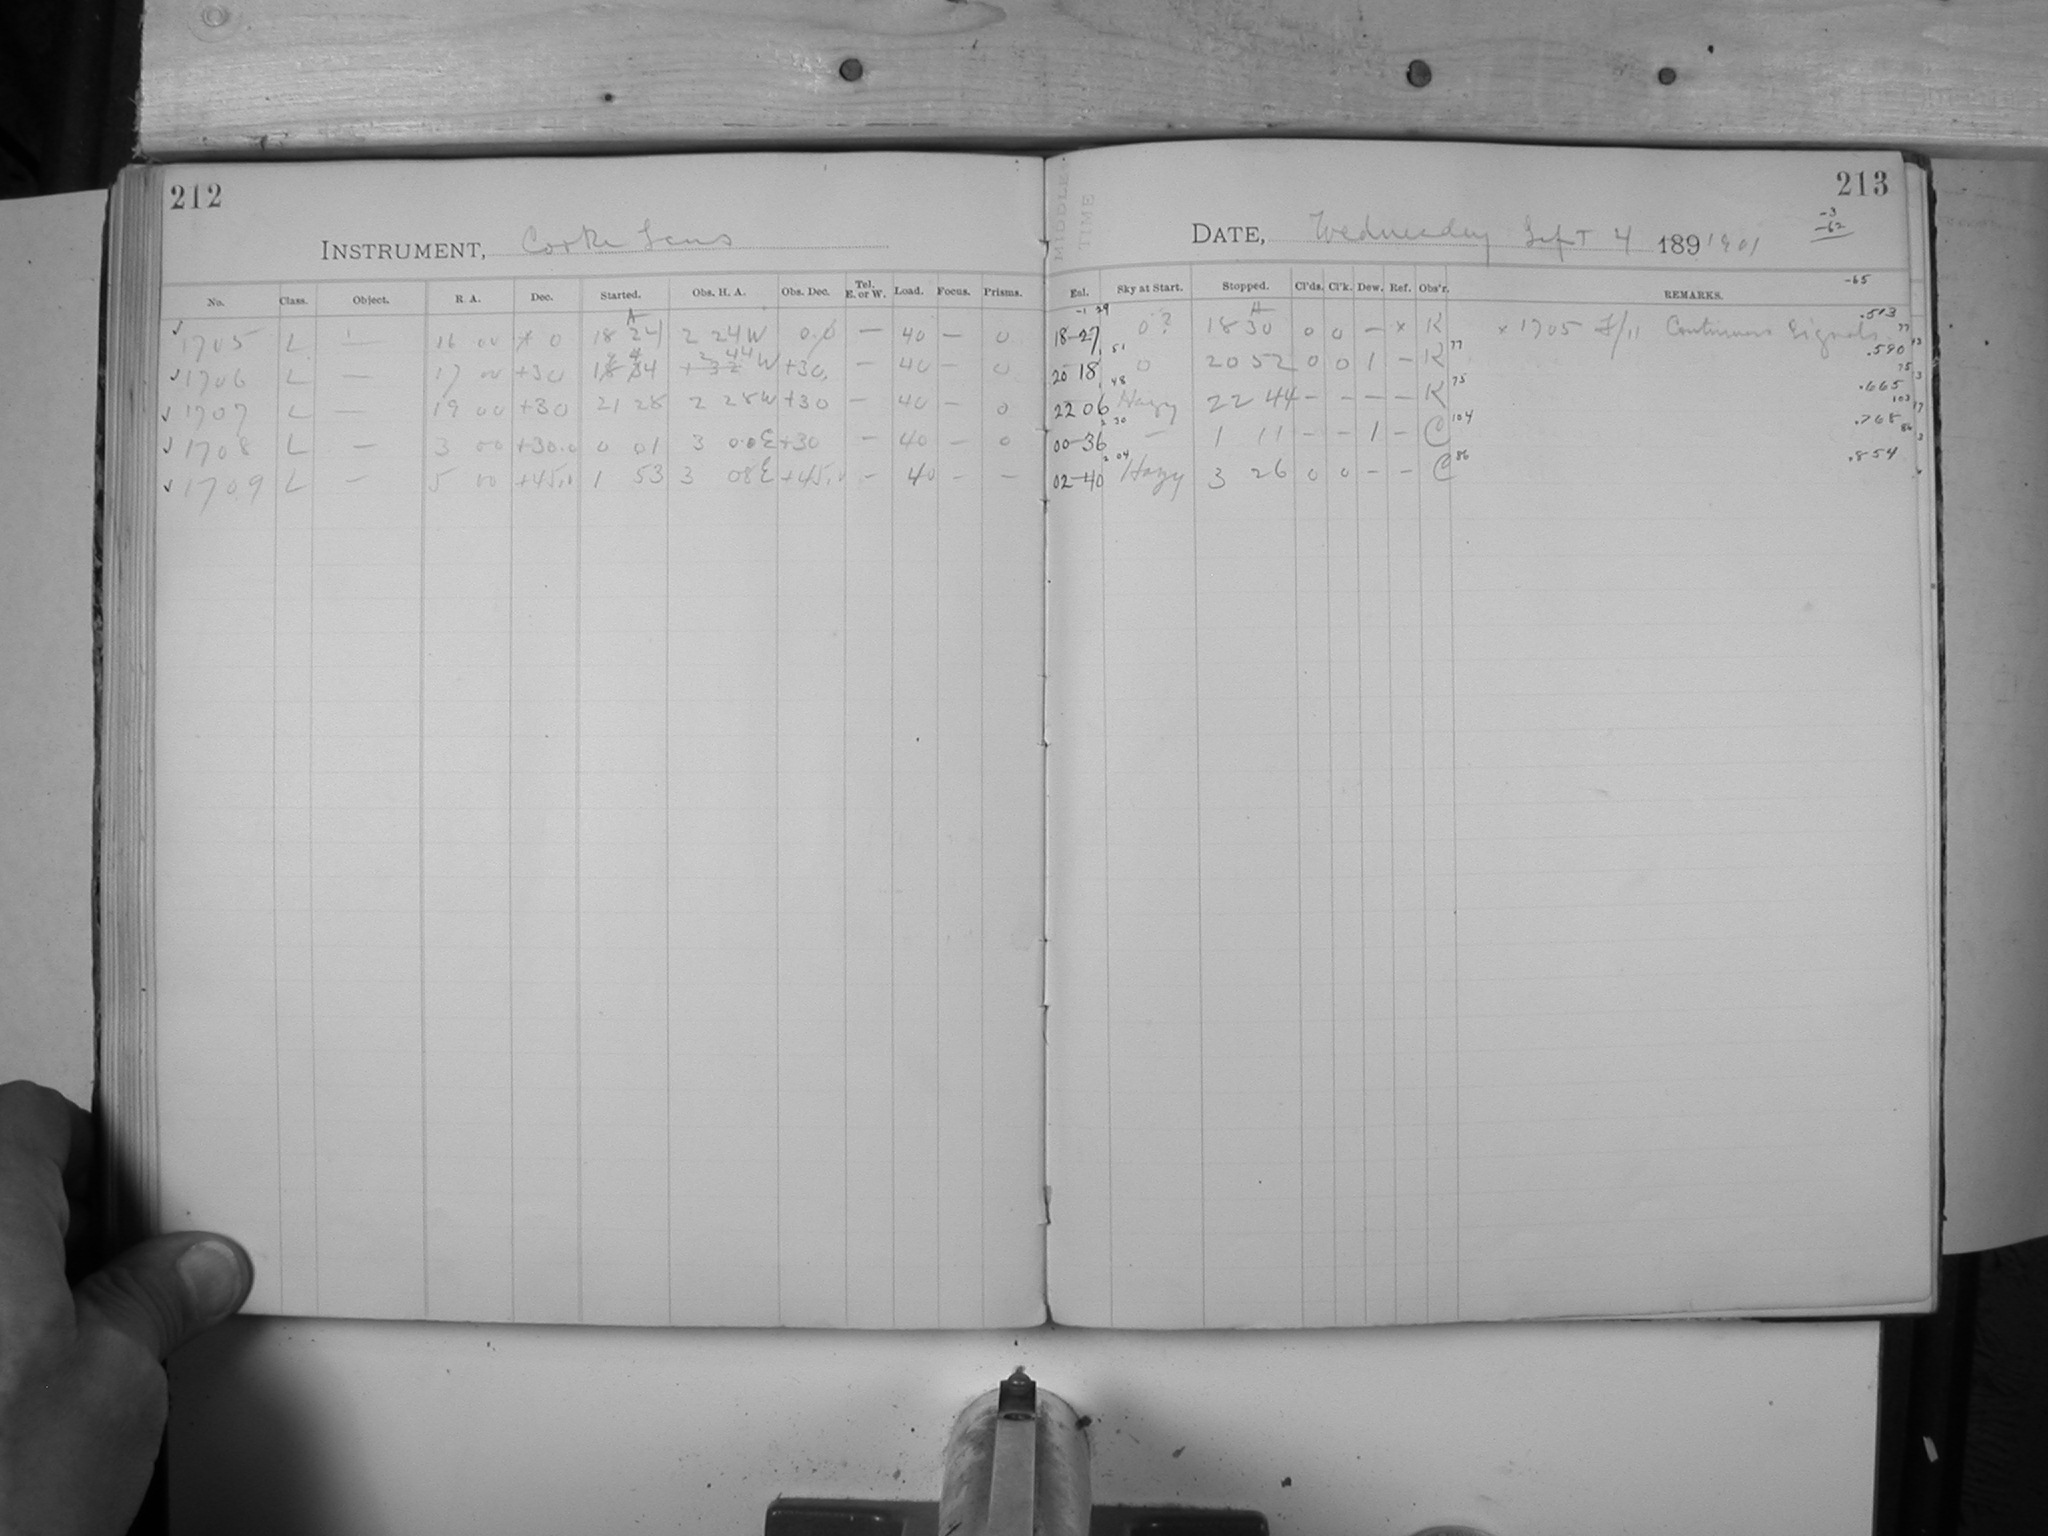 212
INSTRUMENT, Cooke Lens
No. Class. Object. R A. Dec. Started. Obs. H. A. Obs. Dec. Tel. E. or W. Load. Focus. Prisms.
✓ 1705 L — 16 00 0 18 24 2 24 W 0.0 — 40 — 0
✓ 1706 L — 17 00 +30 44 W +30 — 40 — 0
✓ 1707 L — 19 00 +30 21 28 2 28 W +30 — 40 — 0
✓ 1708 L — 3 00 +30.0 0 01 3 00 E +30 — 40 — 0
✓ 1709 L — 5 00 +45.0 1 53 3 08 E +45.0 — 40 — —
213
MIDDLE TIME
DATE, Wednesday Sept 4 189 1901
-3
-62
-65
Enl. Sky at Start. Stopped. Cl'ds. Cl'k. Dew. Ref. Obs'r. REMARKS.
18-27 0? 18 30 0 0 — x K x 1705 F/11 Continuous Signals .513
20 18 0 20 52 0 0 1 — K 77 .590
22 06 Hazy 22 44 — — — — K 75 .665
00-36 — 1 11 — — 1 — C 104 .768
02-40 Hazy 3 26 0 0 — — C 86 .854